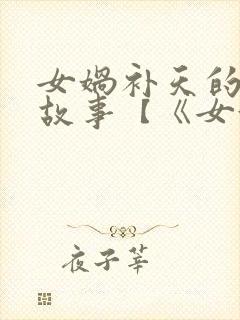 女娲补天的
故事【《女
夜子莘